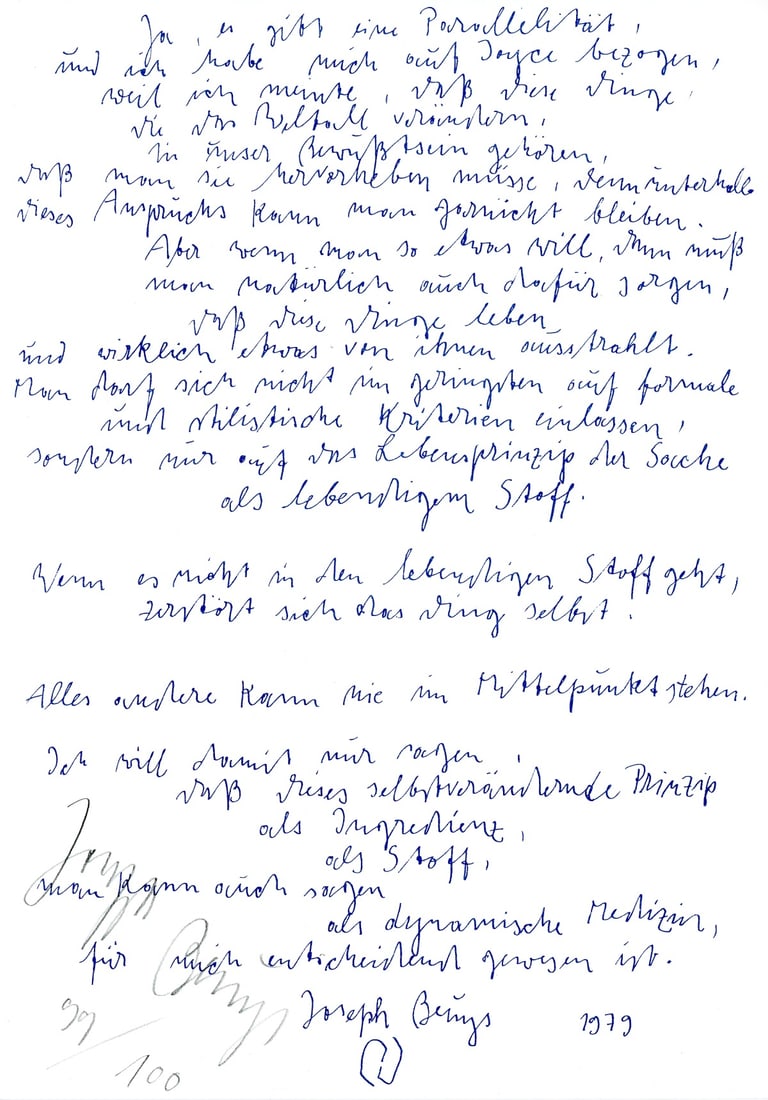 Ja, es gibt eine Parallelität,
und ich habe mich auf Joyce bezogen,
weil ich meinte, daß diese Dinge,
die das Weltall verändern,
in unser Bewußtsein gehören,
daß man sie hervorheben müsse, denn unterhalb
dieses Anspruchs kann man garnicht bleiben.
Aber wenn man so etwas will, dann muß
man natürlich auch dafür sorgen,
daß diese Dinge leben
und wirklich etwas von ihnen ausstrahlt.
Man darf sich nicht im geringsten auf formale
und stilistische Kriterien einlassen,
sondern nur auf das Lebensprinzip der Sache
als lebendigem Stoff.
Wenn es nicht in den lebendigen Stoff geht,
zerstört sich das Ding selbst.
Alles andere kann nie im Mittelpunkt stehen.
Ich will damit nur sagen,
daß dieses selbstverändernde Prinzip
als Ingredienz,
als Stoff,
man kann auch sagen
als dynamische Medizin,
für mich entscheidend gewesen ist.
Joseph Beuys 1979
Joseph
Beuys
99/100